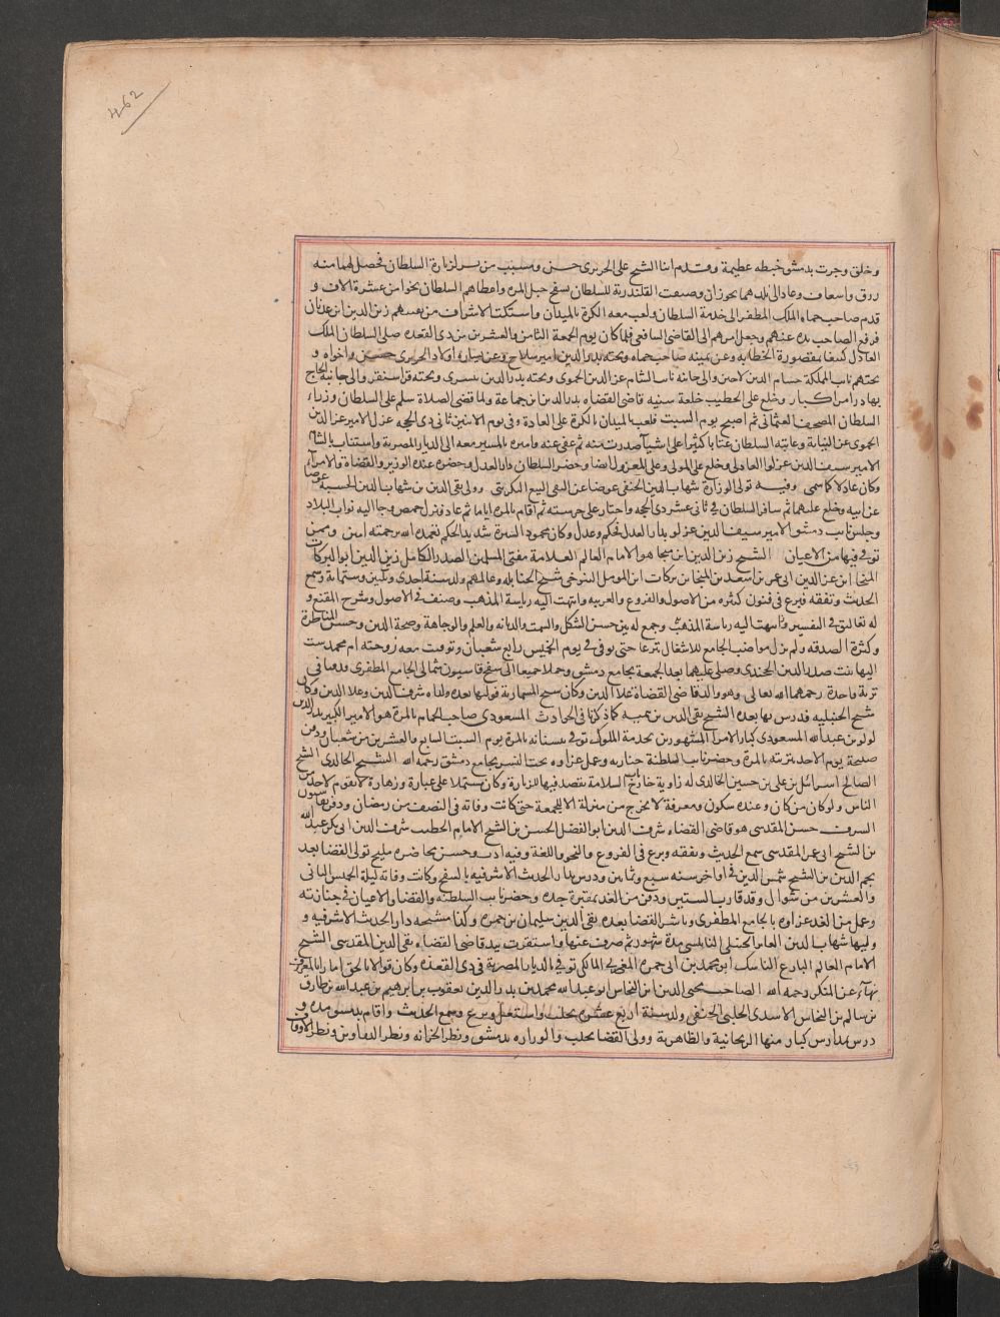 462
وخلق وجرت بدمشق خبطه عظيمة وقدم ابنا الشيخ علي الحريري حسن و من بسر لزيارة السلطان فحصل لهما منه
رزق واسعاف وعادا الى بلدهما بحوران وصنعت القلندرية للسلطان بسفح جبل المزه واعطاهم السلطان نحوا من عشرة الاف و
قدم صاحب حماه الملك المظفر الى خدمة السلطان ولعب معه الكرة بالميدان واستكت الاشراف من نقيبهم زين الدين ابن عدنان
فرفع الصاحب يده عنهم وجعل امرهم الى القاضي الشافعي فلما كان يوم الجمعة الثامن والعشرين من ذي القعده صلى السلطان الملك
العادل كتبغا بمقصورة الخطابه وعن يمينه صاحب حماه وتحته بدر الدين امير سلاح وعن يساره اولاد الحريري حسن واخواه و
تحتهم نايب المملكة حسام الدين لاجين والى جانبه نايب الشام عز الدين الحموي وتحته بدر الدين بيسري وتحته قراسنقر والى جانبه الحاج
بهادر امراء كبار وخلع على الخطيب خلعة سنيه قاضي القضاه بدر الدين ابن جماعة ولما قضى الصلاة سلم على السلطان وزار
السلطان المصحف العثماني ثم اصبح يوم السبت فلعب بالميدان بالكرة على العادة وفي يوم الاثنين ثاني ذي الحجه عزل الامير عز الدين
الحموي عن النيابة وعاتبه السلطان عتابا كثيرا على اشيا صدرت منه ثم عفى عنه وامره بالمسير معه الى الديار المصرية واستناب بالشام
الامير سيف الدين غرلوا العادلي وخلع على المولى وعلى المعزول ايضا وحضر السلطان دار العدل وحضره عنده الوزير والقضاة والامرآء
وكان عادلا كما سمي وفيه تولى الوزارة شهاب الدين الحنفي عوضا عن التقي البيع التكريتي وولي تقي الدين بن شهاب الدين الحسبة عوضا
عن ابيه وخلع عليهما ثم سافر السلطان في ثاني عشر ذي الحجه واجتاز على حرسته ثم اقام بالمزه اياما ثم عاد فنزل حمص وجا اليه نواب البلاد
وجلس نايب دمشق الامير سيف الدين غرلو بدار العدل فحكم وعدل وكان محمود السيرة شديد الحكم تغمده الله برحمته امين وممن
توفي فيها من الاعيان الشيخ زين الدين ابن منجا هو الامام العالم العلامة مفتي المسلمين الصدر الكامل زين الدين ابو البركات
المنجا ابن عز الدين ابي عمر بن اسعد بن المنجا بن بركات ابن المومل التنوخي شيخ الحنابله وعالمهم ولد سنة احدى وثلثين وستمائة وسمع
الحديث وتفقه فبرع في فنون كثيره من الاصول والفروع والعربيه وانتهت اليه رياسة المذهب وصنف في الاصول وشرح المقنع و
له تعاليق في التفسير وانتهت اليه رياسة المذهب وجمع له بين حسن الشكل والسمت والديانه والعلم والوجاهة وصحة الدين وحسن المناظرة
وكثرة الصدقه ولم يزل مواضب الجامع للاشغال تبرعا حتى توفي في يوم الخميس رابع شعبان وتوفيت معه زوجته ام محمد ست
البها بنت صدر الدين الخجندي وصلي عليهما بعد الجمعة بجامع دمشق وحملا جميعا الى سفح قاسيون شمالي الجامع المظفري ودفنا في
تربة واحدة رحمهما الله تعالى وهو والد قاضي القضاة علاء الدين وكان شيخ المسمارية فوليها بعده ولداه شرف الدين وعلا الدين وكان
شيخ الحنبليه فدرس بها بعده الشيخ تقي الدين بن تيميه كما ذكرنا في الحوادث المسعودي صاحب الحمام بالمزة هو الامير الكبير بدر الدين
لولو بن عبد الله المسعودي كبار الامرا المشهورين بخدمة الملوك توفي ببستانه بالمزة يوم السبت السابع والعشرين من شعبان ودفن
صبيحة يوم الاحد بتربته بالمزة وحضر نايب السلطنة جنازته وعمل عزاوه تحت النسر بجامع دمشق رحمه الله الشيخ الخالدي الشيخ
الصالح اسرائيل بن علي بن حسين الخالدي له زاوية خارج باب السلامة يقصد فيها للزيارة وكان مشتملا على عبادة وزهادة لا يقوم لاحد من
الناس ولو كان من كان وعنده سكون ومعرفة لا يخرج من منزله الا للجمعة حتى كانت وفاته في النصف من رمضان ودفن بقاسيون
الشرف حسن المقدسي هو قاضي القضاه شرف الدين ابو الفضل الحسن بن الشيخ الامام الخطيب شرف الدين ابي بكر عبد الله
بن الشيخ ابي عمر المقدسي سمع الحديث وتفقه وبرع في الفروع والنحو واللغة وفيه ادب وحسن محاضره مليح تولى القضا بعد
نجم الدين بن الشيخ شمس الدين في اواخر سنه سبع وثمانين ودرس بدار الحديث الاشرفيه بالسفح وكانت وفاته ليلة الخميس الثاني
والعشرين من شوال وقد قارب الستين ودفن من الغد بمقبرة جده وحضر نايب السلطنه والقضاه والاعيان في جنازته
وعمل من الغد عزاوه بالجامع المظفري وباشر القضا بعده تقي الدين سليمان بن حمزه وكذا مشيخه دار الحديث الاشرفيه و
وليها شهاب الدين العابر الحنبلي النابلسي مدة شهور ثم صرف عنها واستقرت بيد قاضي القضاه تقي الدين المقدسي الشيخ
الامام العالم البارع الناسك ابو محمد بن ابي جمره المغربي المالكي توفي بالديار المصرية في ذي القعده وكان قوالا بالحق امارا بالمعروف
نهآء عن المنكر رحمه الله الصاحب محيي الدين ابن النحاس ابو عبد الله محمد بن بدر الدين يعقوب بن ابرهيم بن عبد الله بن طارق
بن سالم بن النحاس الاسدي الحلبي الحنفي ولد سنة اربع عشره بحلب واشتغل وبرع وسمع الحديث واقام بدمشق مده و
درس بمدارس كبار منها الريحانية والظاهرية وولي القضا بحلب والوزاره بدمشق ونظر الخزانه ونظر الدواوين ونظر الاوقاف